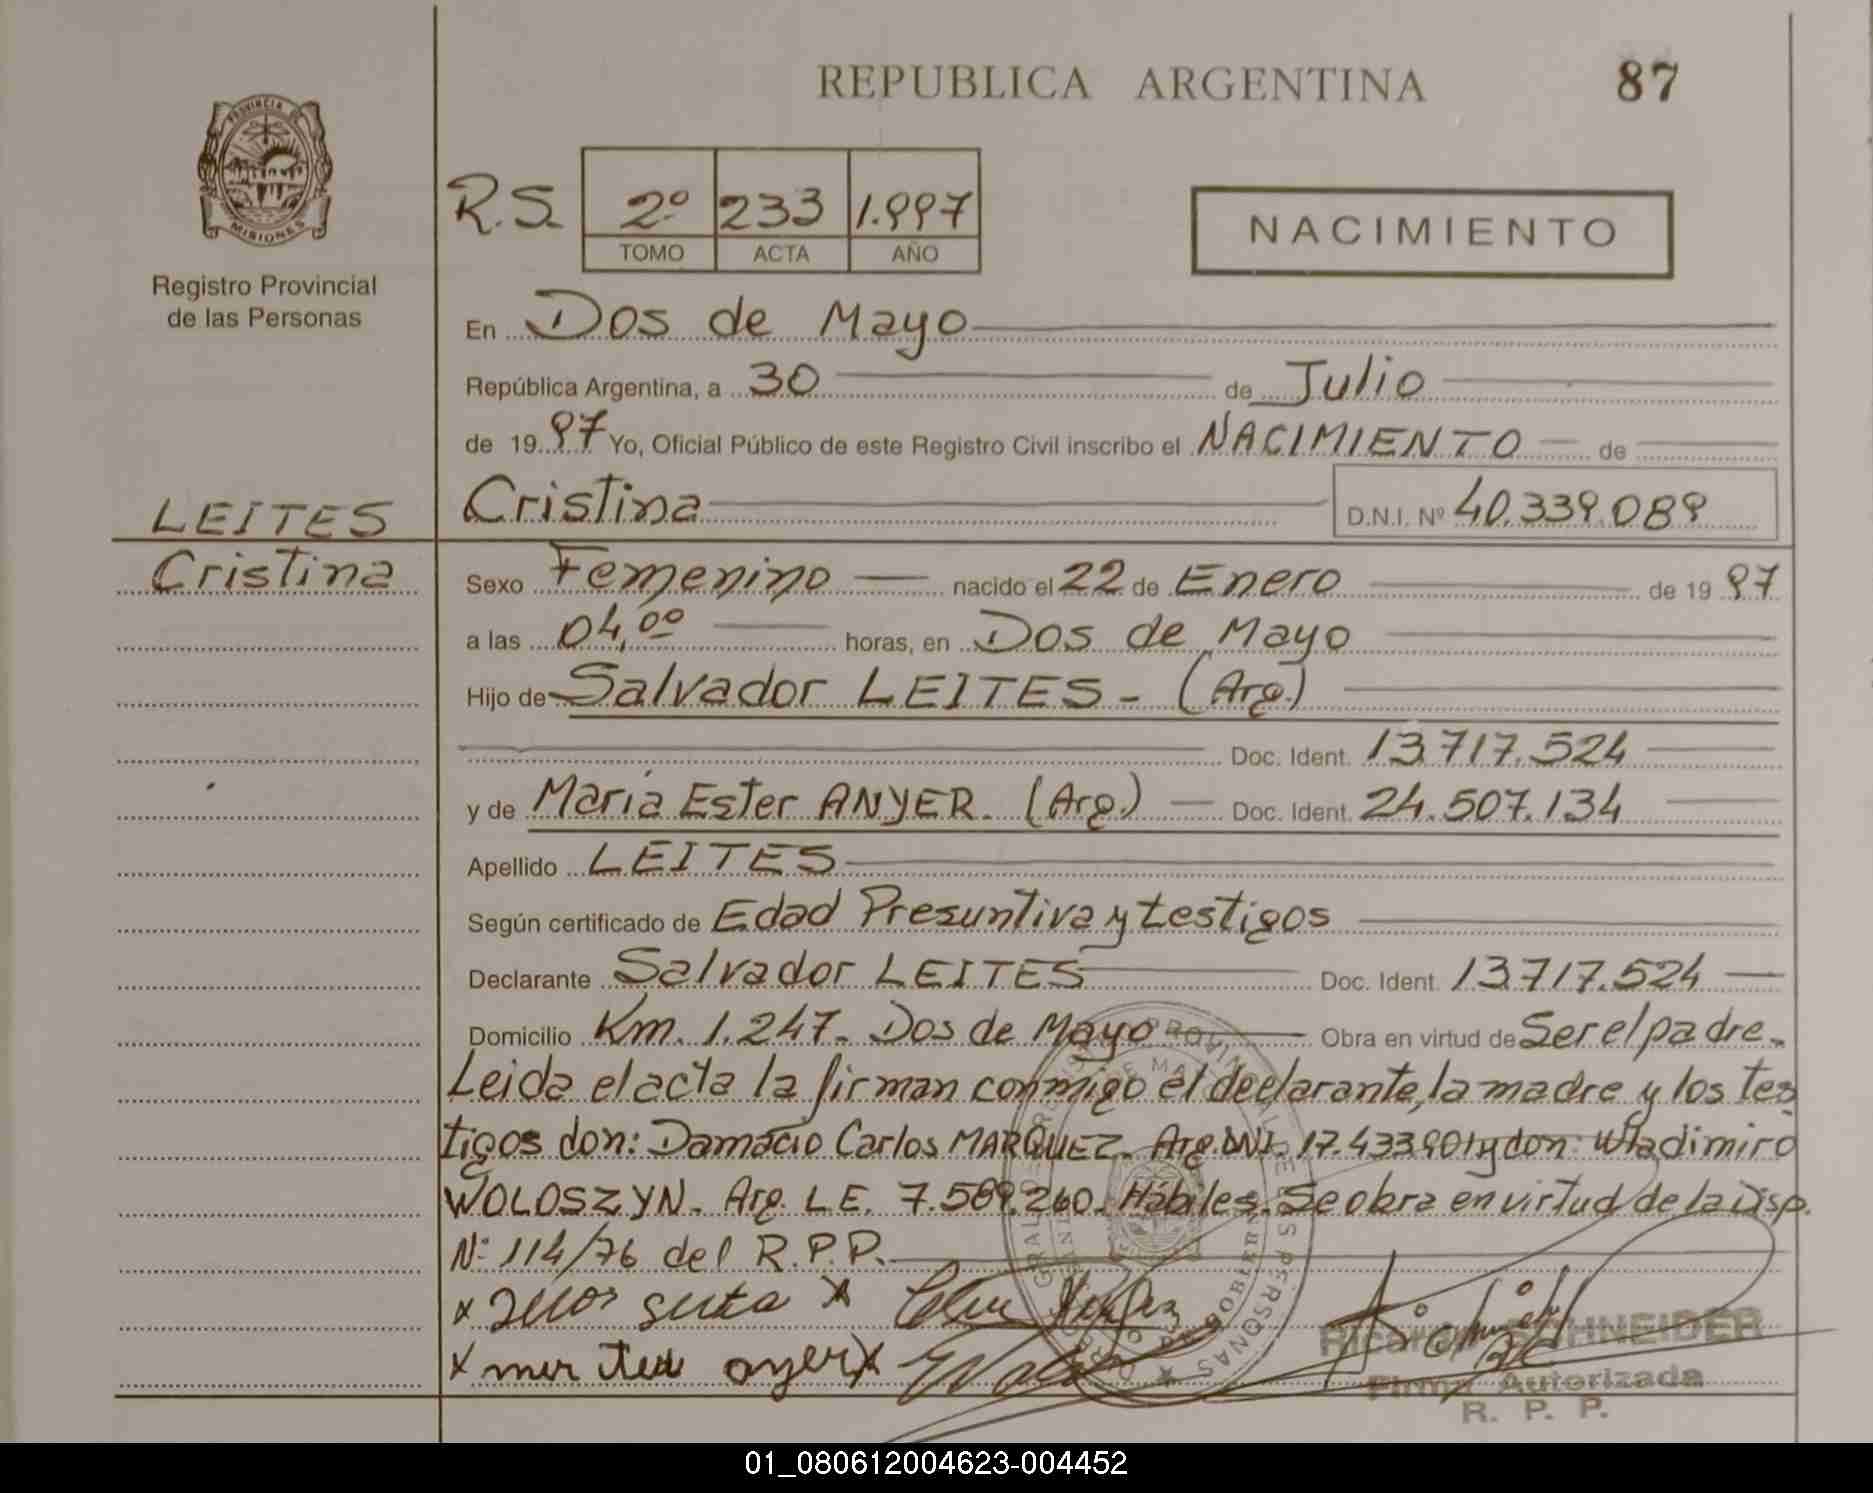 REPUBLICA ARGENTINA
87
PROVINCIA DE
MISIONES
Registro Provincial
de las Personas
R.S.
2º 233 1.997
TOMO ACTA AÑO
NACIMIENTO
En Dos de Mayo
República Argentina, a 30 de Julio
de 1997 Yo, Oficial Público de este Registro Civil inscribo el NACIMIENTO de
LEITES
Cristina
Cristina D.N.I. Nº 40.339.089
Sexo Femenino nacido el 22 de Enero de 1997
a las 04,00 horas, en Dos de Mayo
Hijo de Salvador LEITES - (Arg.)
Doc. Ident. 13.717.524
y de Maria Ester ANYER. (Arg.) Doc. Ident. 24.507.134
Apellido LEITES
Según certificado de Edad Presuntiva y testigos
Declarante Salvador LEITES Doc. Ident. 13.717.524
Domicilio Km. 1.247- Dos de Mayo Obra en virtud de Ser el padre.
Leida el acta la firman conmigo el declarante, la madre y los tes
tigos don: Damacio Carlos MARQUEZ. Arg. DNI. 17.433.901 y don: Wladimiro
WOLOSZYN. Arg. L.E. 7.589.260. Hábiles. Se obra en virtud de la Disp.
Nº 114/76 del R.P.P.
Ricardo SCHNEIDER
Firma Autorizada
R. P. P.
01_080612004623-004452